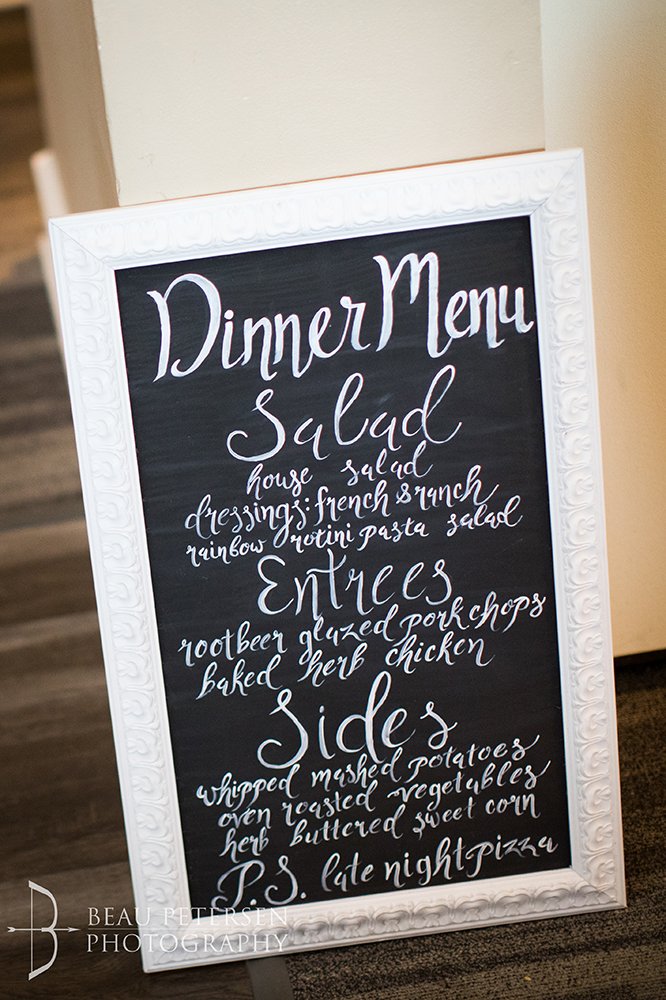 Dinner Menu
Salad
house salad
dressings: french & ranch
rainbow rotini pasta salad
Entrees
rootbeer glazed pork chops
baked herb chicken
Sides
whipped mashed potatoes
oven roasted vegetables
herb buttered sweet corn
P.S. late night pizza
BEAU PETERSEN
PHOTOGRAPHY